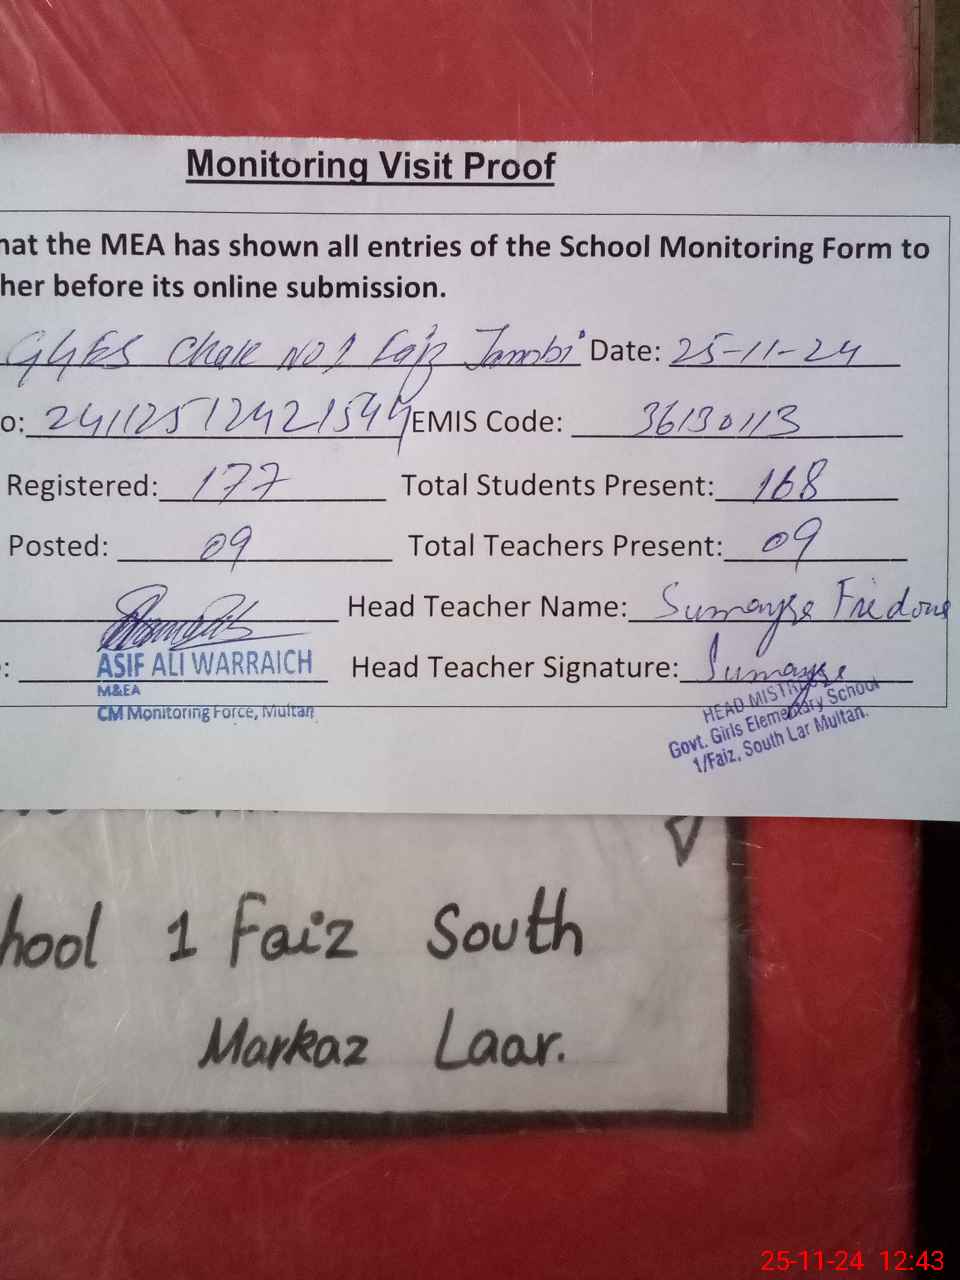 Monitoring Visit Proof
hat the MEA has shown all entries of the School Monitoring Form to
her before its online submission.
GGES Chak NO 1 Faiz Janobi Date: 25-11-24
o: 24112512421544 EMIS Code: 36130113
Registered: 177 Total Students Present: 168
Posted: 09 Total Teachers Present: 09
Head Teacher Name: Sumayya Firdous
ASIF ALI WARRAICH
: Head Teacher Signature: Sumayya
M&EA
CM Monitoring Force, Multan
HEAD MISTRESS
Govt. Girls Elementary School
1/Faiz, South Lar Multan.
hool 1 Faiz South
Markaz Laar.
25-11-24 12:43